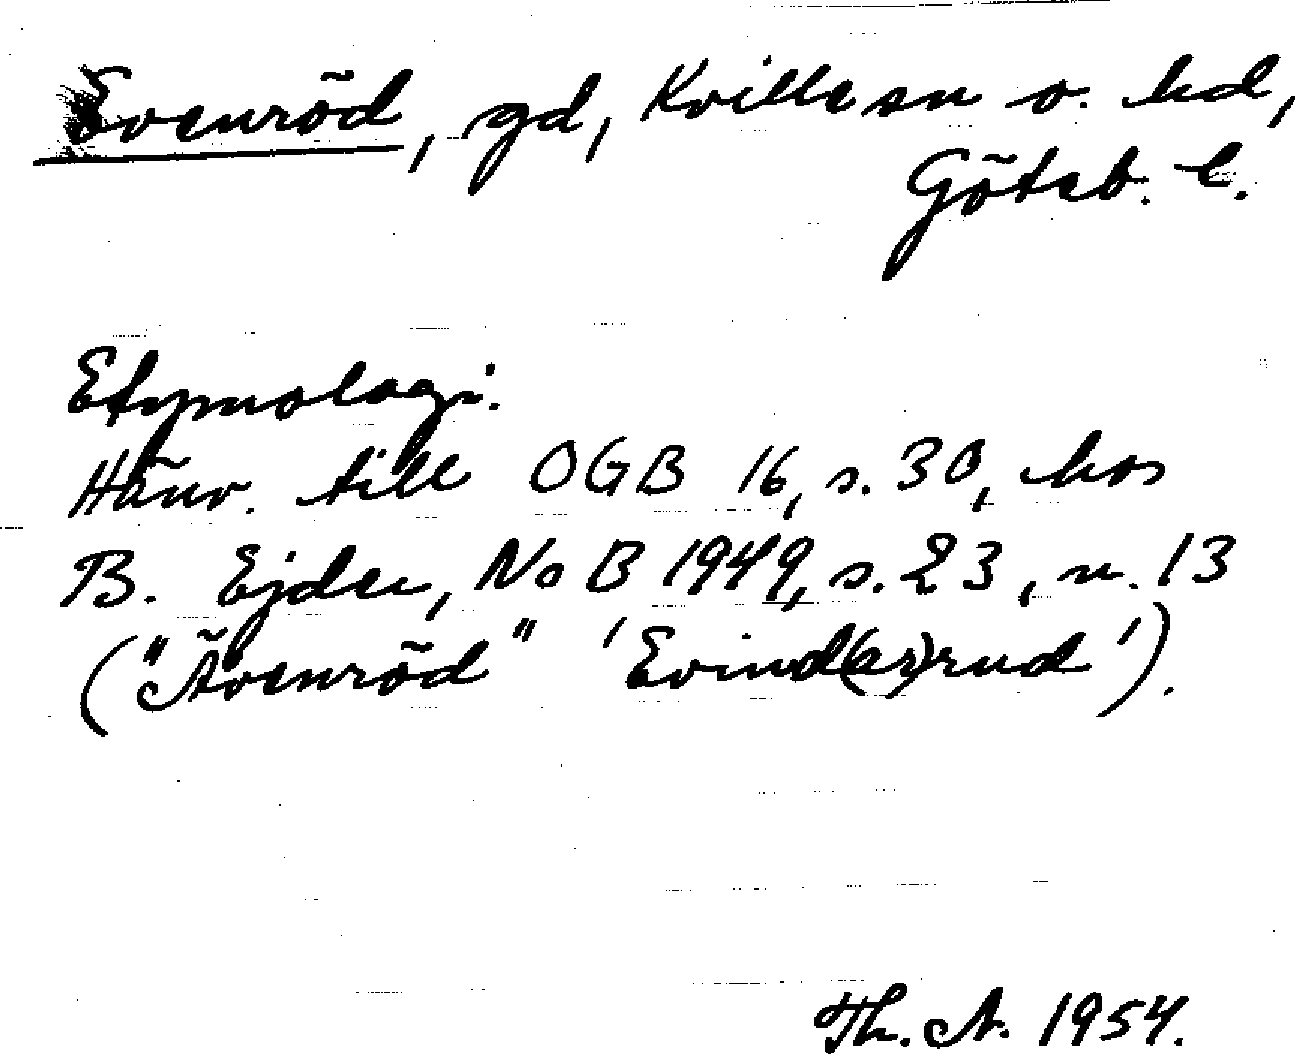 Evenröd, gd, Kville sn o. hd,
Göteb. l.
Etymologi:
Hänv. till OGB 16, s. 30, hos
B. Ejder, NoB 1949, s. 23, n. 13
("Ävenröd" 'Evind(ar)rud').
Th. A. 1954.